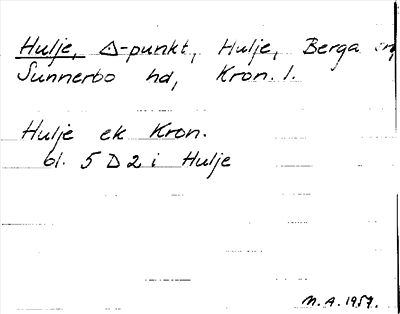 Hulje, △-punkt, Hulje, Berga sn
Sunnerbo hd, Kron. l.
Hulje ek Kron.
bl. 5 D 2 i Hulje
M.A. 1959.